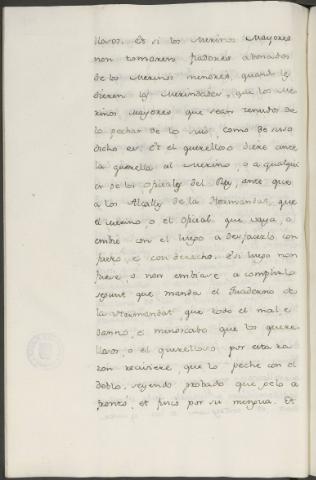 llosos. Et si los Merinos Mayores
non tomaren fiadores abonados
de los Merinos menores, quando le
dieren las Merindades, que los Me
rinos Mayores que sean tenudos de
lo pechar de lo suio, como de suso
dicho es. Et el querelloso diere ante
la querella al Merino, o a qualqui
er de los oficiales del Rey, ante que
a los Alcalles de la Hermandat, que
el merino, o el oficial que vaya, o
embie con el luego a desfacerlo con
fuero, e con derecho. Et si luego non
fuere, o non embiare a complirlo
segunt que manda el Quaderno de
la Hermandat, que todo el mal, e
danno, e menoscabo que los quere
llosos, o el querelloso por esta ra
zon reciviere, que lo peche con el
doblo, seyendo probado que gelo a
frontó, et fincó por su mengua. Et